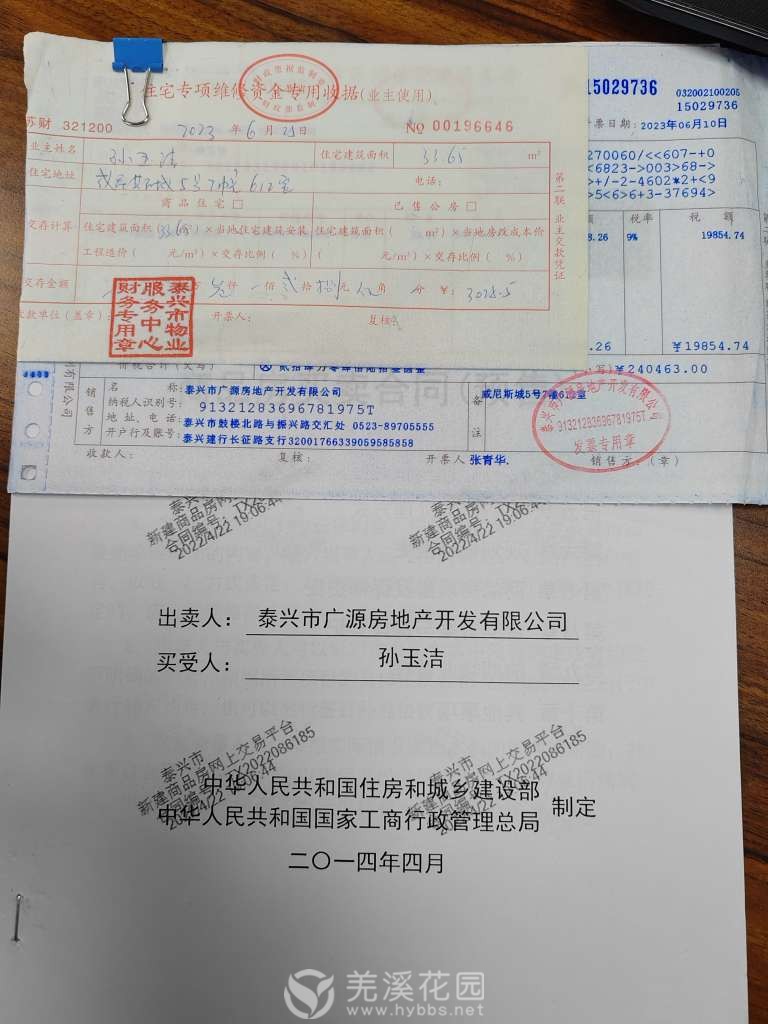 住宅专项维修资金专用收据(业主使用)
苏财 321200
2023 年 6 月 25 日
No 00196646
业主姓名 孙玉洁 住宅建筑面积 33.65 m²
住宅地址 5号7幢 612室 电话:
商品住宅□ 已售公房□
交存计算 住宅建筑面积(33.65)×当地住宅建筑安装 住宅建筑面积( m²)×当地房改成本价
工程造价( 元/m²)×交存比例( %) ( 元/m²)×交存比例( %)
交存金额 仟 佰 贰 拾 捌 元 伍 角 分 ¥: 3028.5
收款单位(盖章): 开票人: 复核:
第二联 业主交款凭证
泰兴市物业
服务中心
财务专用章
15029736
032002100205
15029736
开票日期: 2023年06月10日
270060/<<607-+0
<6823->003>68->
>+/-2-4602*2+<9
>6+3-37694>
税率 税 额
8.26 9% 19854.74
.26 ¥19854.74
写) ¥240463.00
销售方
名 称: 泰兴市广源房地产开发有限公司
纳税人识别号: 91321283696781975T
地 址、电 话: 泰兴市鼓楼北路与振兴路交汇处 0523-89705555
开户行及账号: 泰兴建行长征路支行32001766339059585858
备注
威尼斯城5号7幢612室
收款人: 复核: 开票人 张青华. 销售方:(章)
泰兴市广源房地产开发有限公司
91321283696781975T
发票专用章
2022/4/22 19:06:44
2022/4/22 19:06:44
出卖人: 泰兴市广源房地产开发有限公司
买受人: 孙玉洁
泰兴市
新建商品房网上交易平台
合同编号:TX2022086185
泰兴市
新建商品房网上交易平台
合同编号:TX2022086185
中华人民共和国住房和城乡建设部
中华人民共和国国家工商行政管理总局 制定
二〇一四年四月
羌溪花园
www.hybbs.net